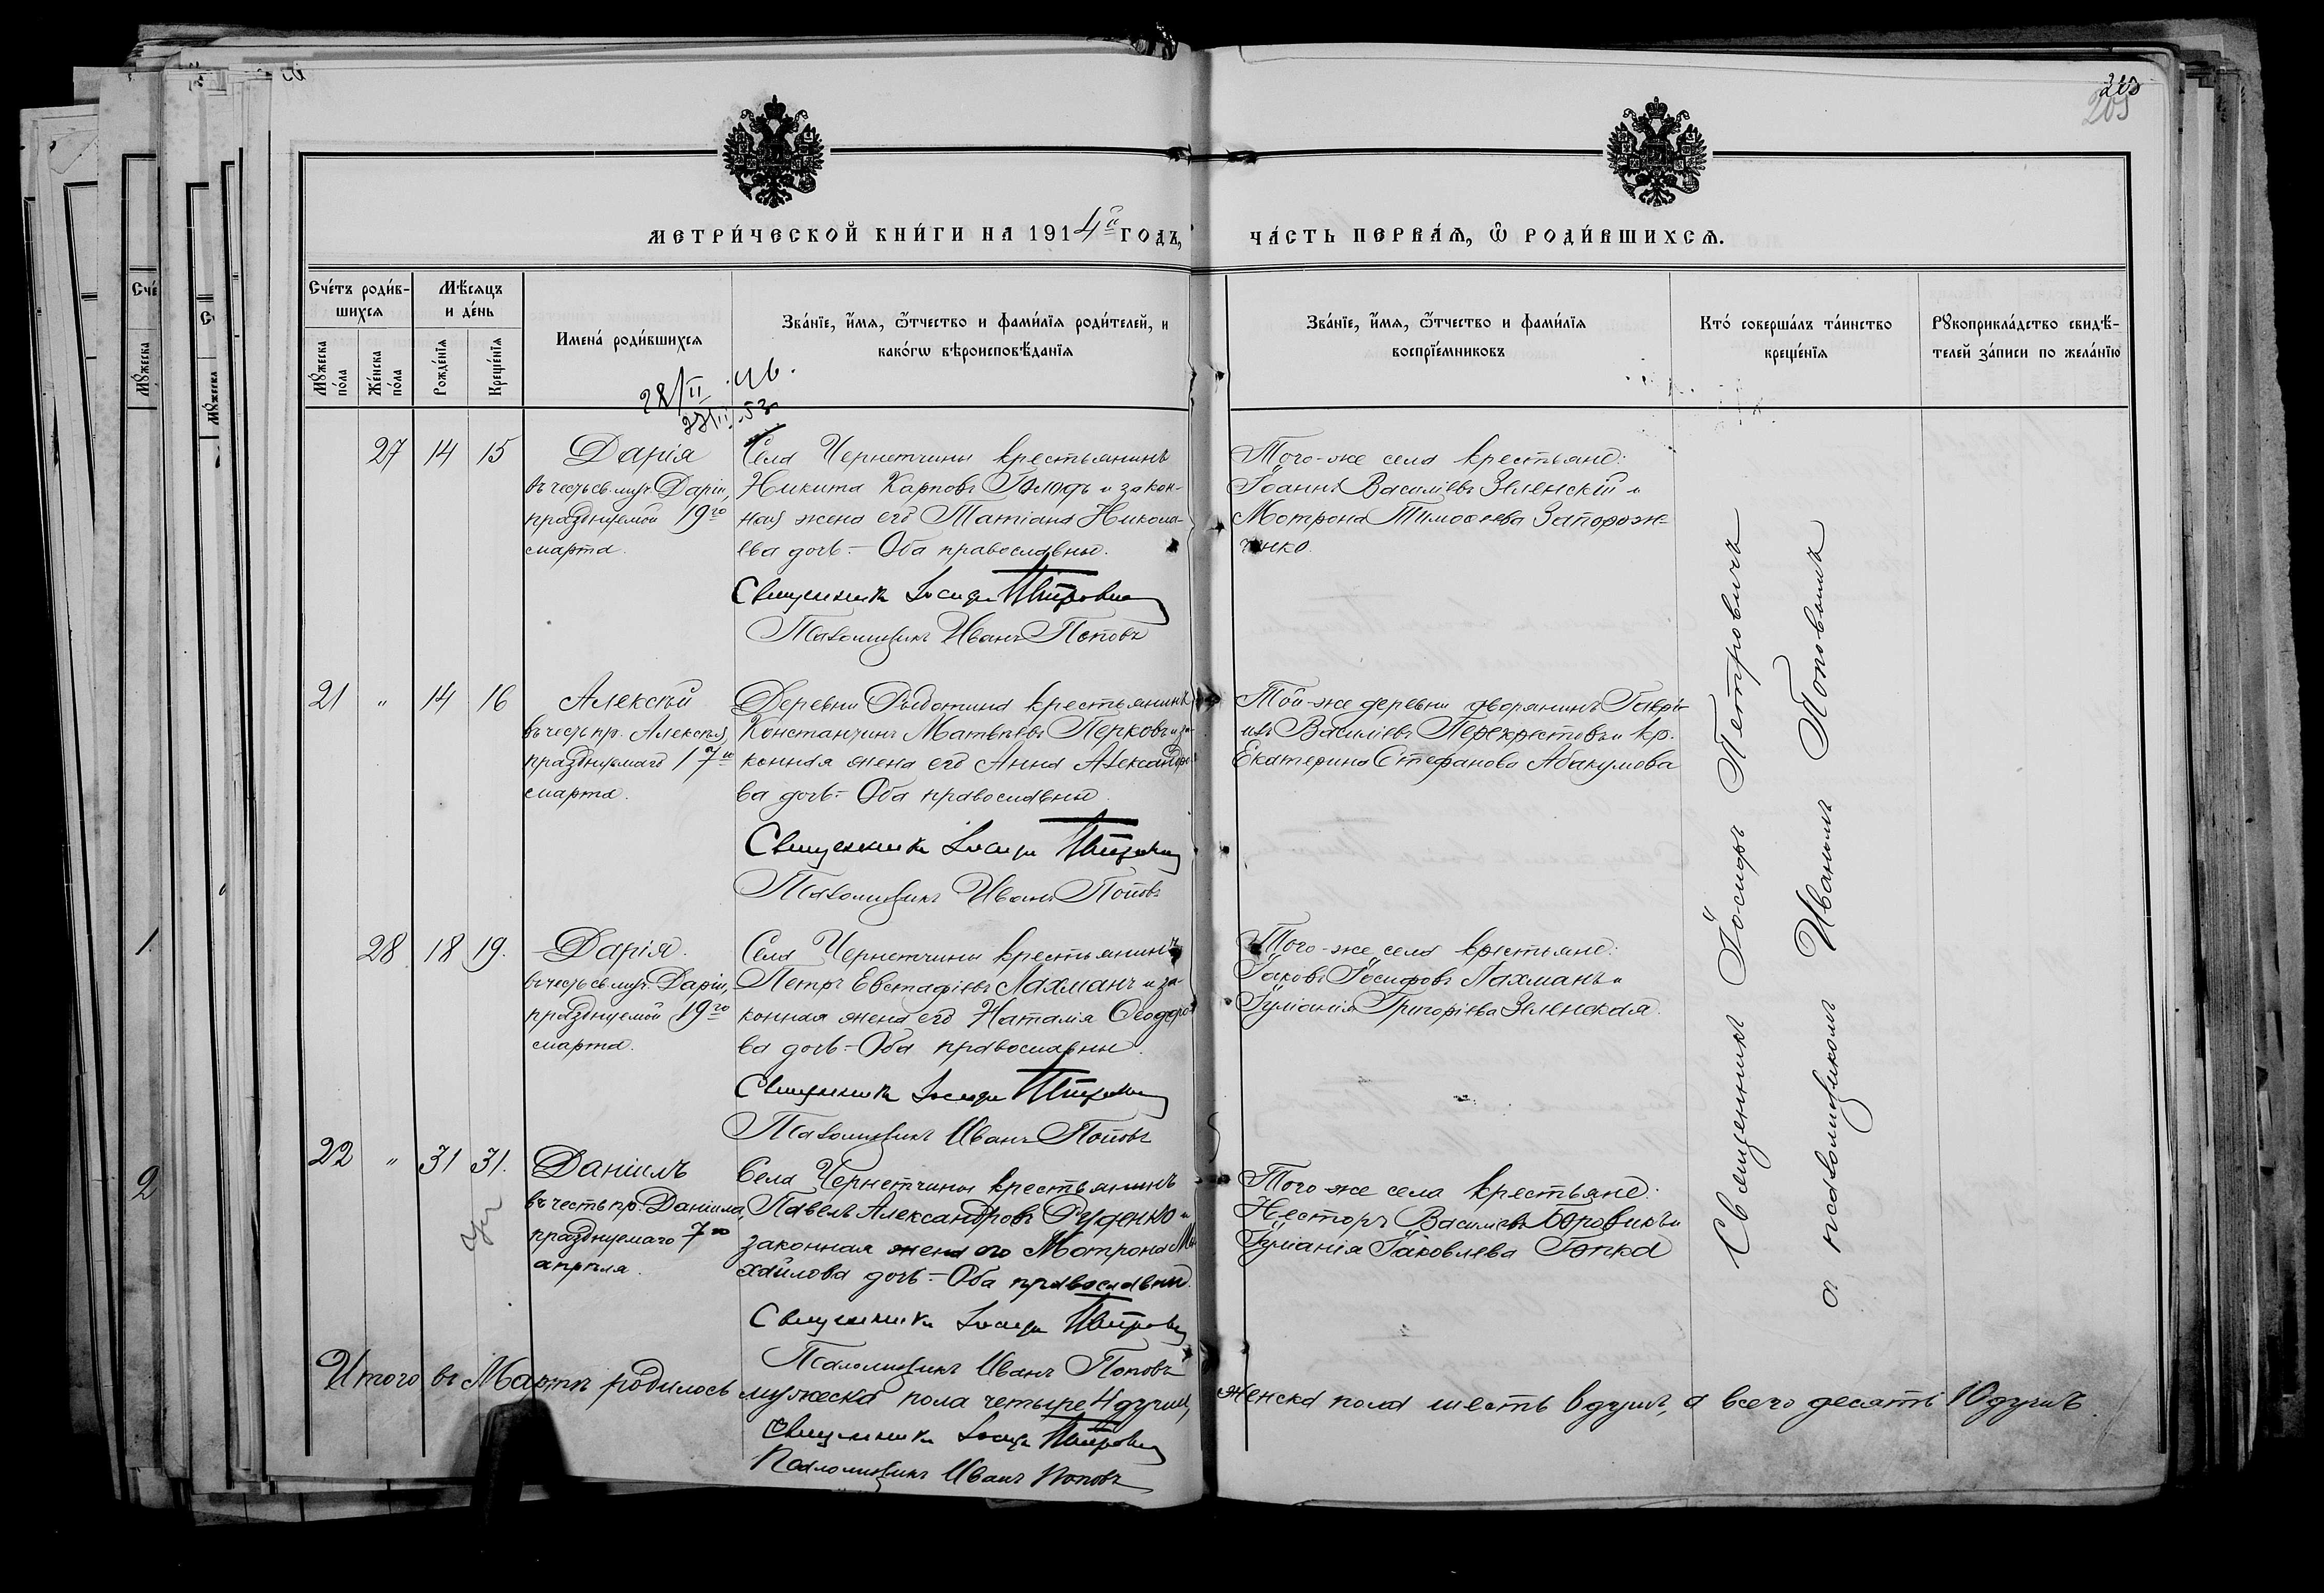 203
205
МЕТРИ́ЧЕСКОЙ КНИ́ГИ НА 1914й ГОДЪ,
ЧА́СТЬ ПЕРВА́Я, Ѡ҆ РОДИ́ВШИХСѦ.
Сче́тъ роди́в-
шихсѧ
Мꙋ́жеска
по́ла
Же́нска
по́ла
Мѣ́сѧцъ
и де́нь
Рожде́нїѧ
Креще́нїѧ
Имена̀ роди́вшихсѧ
Зва́нїе, и҆́мѧ, ѻ҆́тчество и фами́лїѧ роди́телей, и
како́гѡ вѣроисповѣ́данїѧ
Зва́нїе, и҆́мѧ, ѻ҆́тчество и фами́лїѧ
воспрїе́мниковъ
Кто̀ соверша́лъ та́инство
креще́нїѧ
Рꙋкоприкла́дство свидѣ́-
телей за́писи по жела́нїю
28/II 46.
27 14 15
Дарія
въ честь св. муч. Даріи,
празднуемой 19го
марта.
Села Чернетчины крестьянинъ
Никита Карповъ Голюдъ и закон-
ная жена его Татіана Никола-
ева дочь.- Оба православны.
Священникъ Іосифъ Петровичъ
Псаломщикъ Иванъ Поповъ
Того-же села крестьяне:
Іоаннъ Василіевъ Зеленскій и
Мотрона Тимоѳеева Запорож-
ченко.
21 " 14 16
Алексѣй
въ честь пр. Алексѣя,
празднуемаго 17го
марта.
Деревни крестьянинъ
Константинъ Матвѣевъ Перковъ и за-
конная жена его Анна Александро-
ва дочь.- Оба православны.
Священникъ Іосифъ Петровичъ
Псаломщикъ Иванъ Поповъ
Той-же деревни дворянинъ Гаврі-
илъ Василіевъ Перекрестовъ и кр.
Екатерина Стефанова Абакумова
28 18 19.
Дарія.
въ честь св. муч. Даріи,
празднуемой 19го
марта.
Села Чернетчины крестьянинъ
Петръ Евстафіевъ Лахманъ и за-
конная жена его Наталія Ѳеодоро-
ва дочь.- Оба православны.
Священникъ Іосифъ Петровичъ
Псаломщикъ Иванъ Поповъ
Того-же села крестьяне:
Іаковъ Іосифовъ Лахманъ и
Іуліанія Григоріева Зеленская.
22 " 31 31.
Даніилъ
въ честь пр. Даніила,
празднуемаго 7го
апрѣля.
Села Чернетчины крестьянинъ
Павелъ Александровъ Руденко и
законная жена его Мотрона Ми-
хайлова дочь.- Оба православны.
Священникъ Іосифъ Петровичъ
Псаломщикъ Иванъ Поповъ
Того же села крестьяне:
Несторъ Василіевъ Боровикъ и
Іуліанія Іаковлева Гопка
Священникъ Іосифъ Петровичъ
съ псаломщикомъ Иваномъ Поповымъ
Итого въ Мартѣ родилось мужеска пола четыре 4 души, женска пола шесть 6 душъ, а всего десять 10 душъ.
Священникъ Іосифъ Петровичъ
Псаломщикъ Иванъ Поповъ